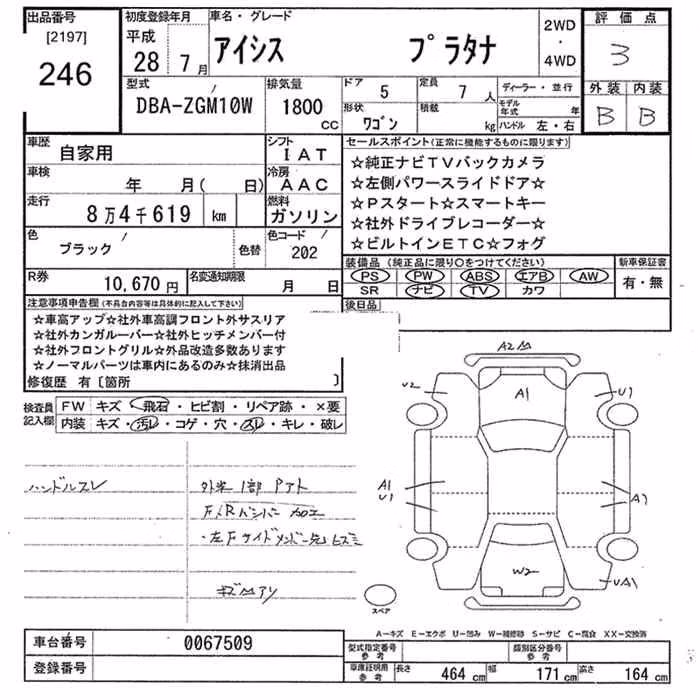 出品番号 [2197] 246
初度登録年月 平成 28 7月
車名・グレード アイシス プラタナ
2WD ・ 4WD
評価点 3
外装 B 内装 B
型式 DBA-ZGM10W
排気量 1800 CC
ドア 5
形状 ワゴン
定員 7人
積載 kg
ディーラー・並行
モデル年式 年
ハンドル 左・右
車歴 自家用
車検 年 月( 日)
走行 8万4千619 km
色 ブラック 色替
シフト IAT
冷房 AAC
燃料 ガソリン
色コード 202
セールスポイント(正常に機能するものに限ります)
☆純正ナビTVバックカメラ
☆左側パワースライドドア☆
☆Pスタート☆スマートキー
☆社外ドライブレコーダー☆
☆ビルトインETC☆フォグ
装備品(純正品に限り○をつけてください)
PS PW ABS エアB AW
SR ナビ TV カワ
新車保証書 有・無
後日品
R券 10,670円
名変通知期限 月 日
注意事項申告欄(不具合内容等は具体的に記入して下さい)
☆車高アップ☆社外車高調フロント外サスリア
☆社外カンガルーバー☆社外ヒッチメンバー付
☆社外フロントグリル☆外品改造多数あります
☆ノーマルパーツは車内にあるのみ☆抹消出品
修復歴 有〔箇所 〕
検査員記入欄
FW キズ・飛石・ヒビ割・リペア跡・×要
内装 キズ・汚レ・コゲ・穴・スレ・キレ・破レ
ハンドルスレ
外装1部Pアト
F/Rバンパー加工
・左Fサイドメンバー先ヒズミ
キズ凹アリ
A2凹
U2 A1 U1
A1 U1
W2
スペア
A-キズ E-エクボ U-凹み W-補修跡 S-サビ C-腐食 XX-交換済
車台番号 0067509
登録番号
型式指定番号 参考
類別区分番号 参考
車庫証明用 参考 長さ 464cm 幅 171cm 高さ 164cm